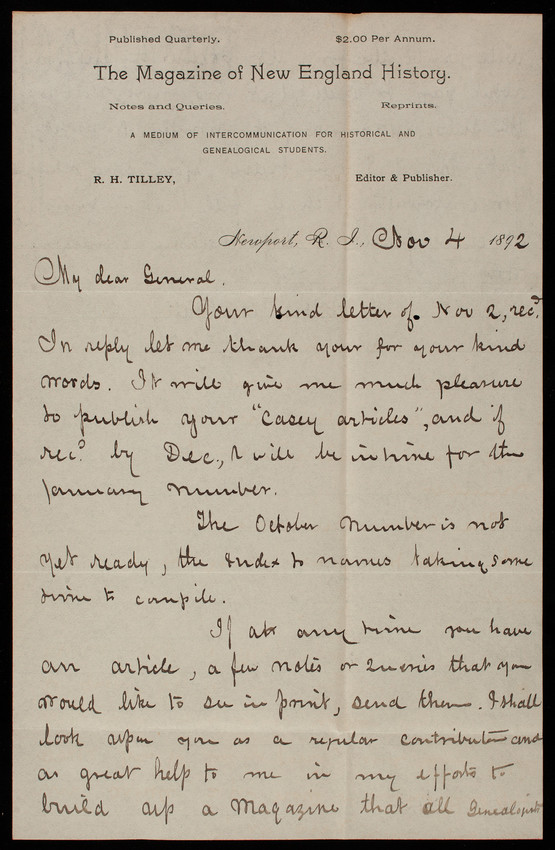 Published Quarterly. $2.00 Per Annum.
The Magazine of New England History.
Notes and Queries. Reprints.
A MEDIUM OF INTERCOMMUNICATION FOR HISTORICAL AND
GENEALOGICAL STUDENTS.
R. H. TILLEY, Editor & Publisher.
Newport, R. I., Nov 4 1892
My dear General.
Your kind letter of Nov 2, recd.
In reply let me thank your for your kind
words. It will give me much pleasure
to publish your "Casey articles", and if
recd. by Dec., I will be in time for the
January number.
The October number is not
yet ready, the Index to names taking some
time to compile.
If at any time you have
an article, a few notes or Queries that you
would like to see in print, send them. I shall
look upon you as a regular contributor and
as great help to me in my efforts to
build up a Magazine that all Genealogists